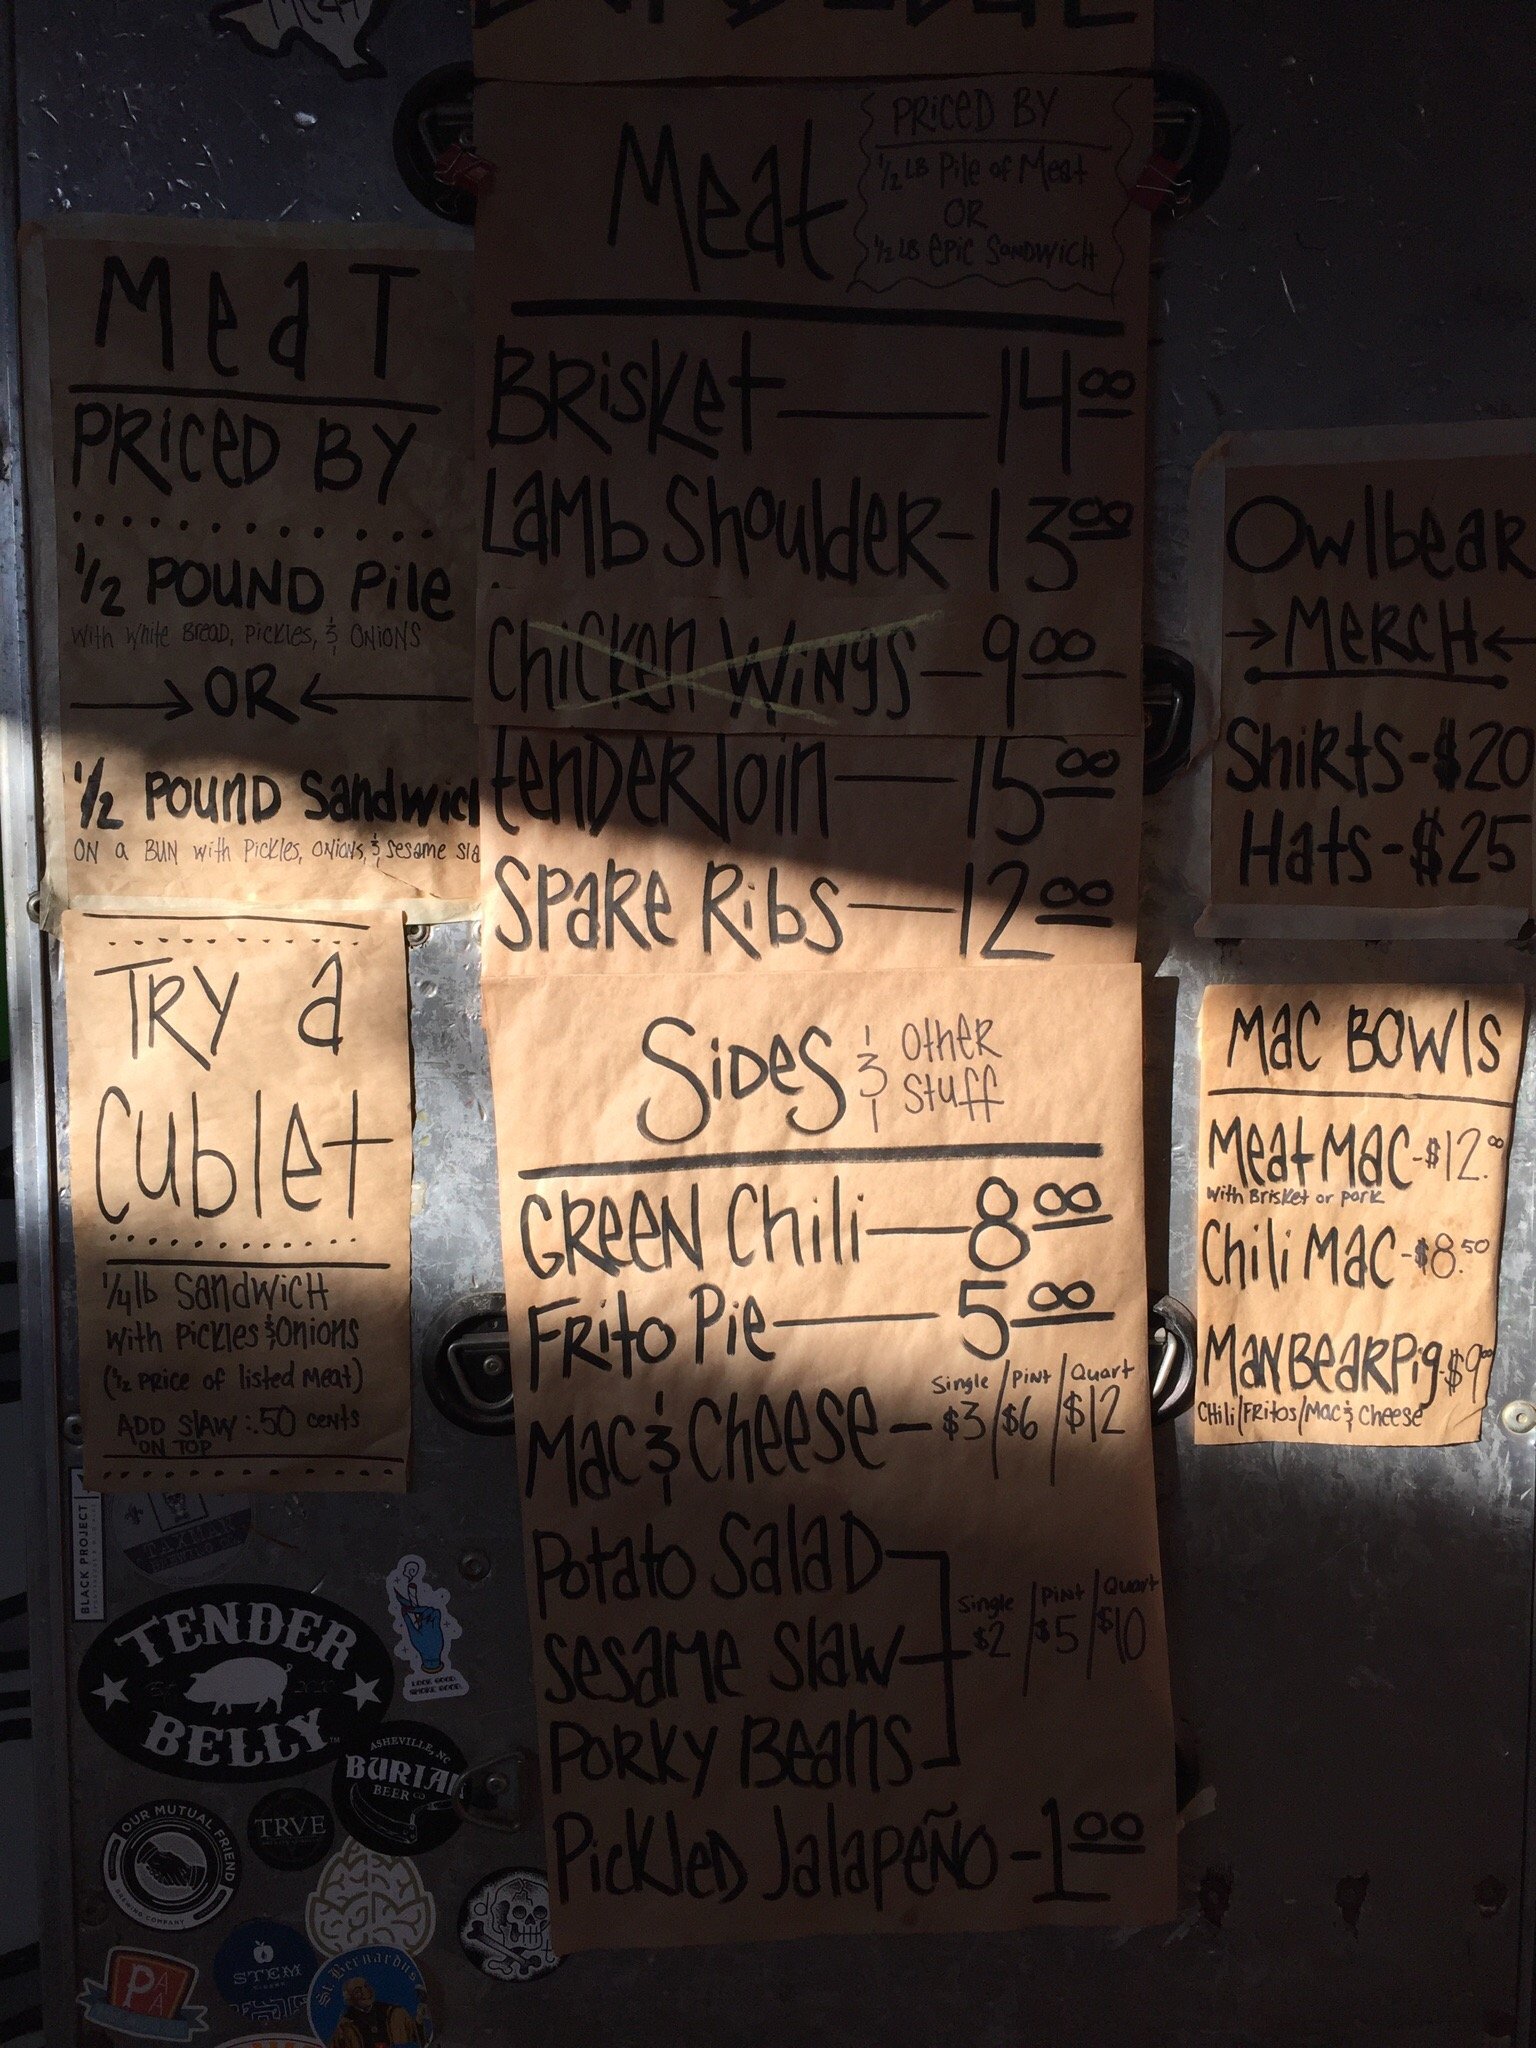 MeaT
PRiCeD BY
1/2 POUND Pile
with White BreaD, Pickles, & ONiONS
→ OR ←
1/2 POUND Sandwich
ON a BUN with Pickles, ONiONS, & Sesame Sla
TRY a
Cublet
1/4 lb SandwicH
with Pickles & Onions
(1/2 PRice of listed Meat)
ADD SlaW: .50 ceNts
ON TOP
Meat
PRiCeD BY
1/2 LB Pile of Meat
OR
1/2 LB EPiC SaNDWicH
BRisKet — 14.00
Lamb Shoulder - 13.00
Chicken Wings - 9.00
tenDeRloin — 15.00
SPaRe Ribs — 12.00
SiDeS & OtHeR
Stuff
GReeN Chili — 8.00
FRito Pie — 5.00
Single / PiNt / Quart
Mac & CHeeSe - $3 / $6 / $12
Potato SalaD
Single / PiNt / Quart
Sesame Slaw
$2 / $5 / $10
PoRKY Beans
PicKleD JalaPeÑO - 1.00
Owlbear
→ MeRCH ←
ShiRtS - $20
Hats - $25
Mac BOWls
Meat Mac - $12.00
with BrisKet or PoRK
Chili Mac - $8.50
ManBeaRPig - $9.00
CHili/FRitos/Mac & CHeese
BLACK PROJECT
TENDER
BELLY
LOOK GOOD.
SMOKE GOOD.
ASHEVILLE, NC
BURIAL
BEER CO
OUR MUTUAL FRIEND
BREWING COMPANY
TRVE
STEM
CIDERS
St. Bernardus